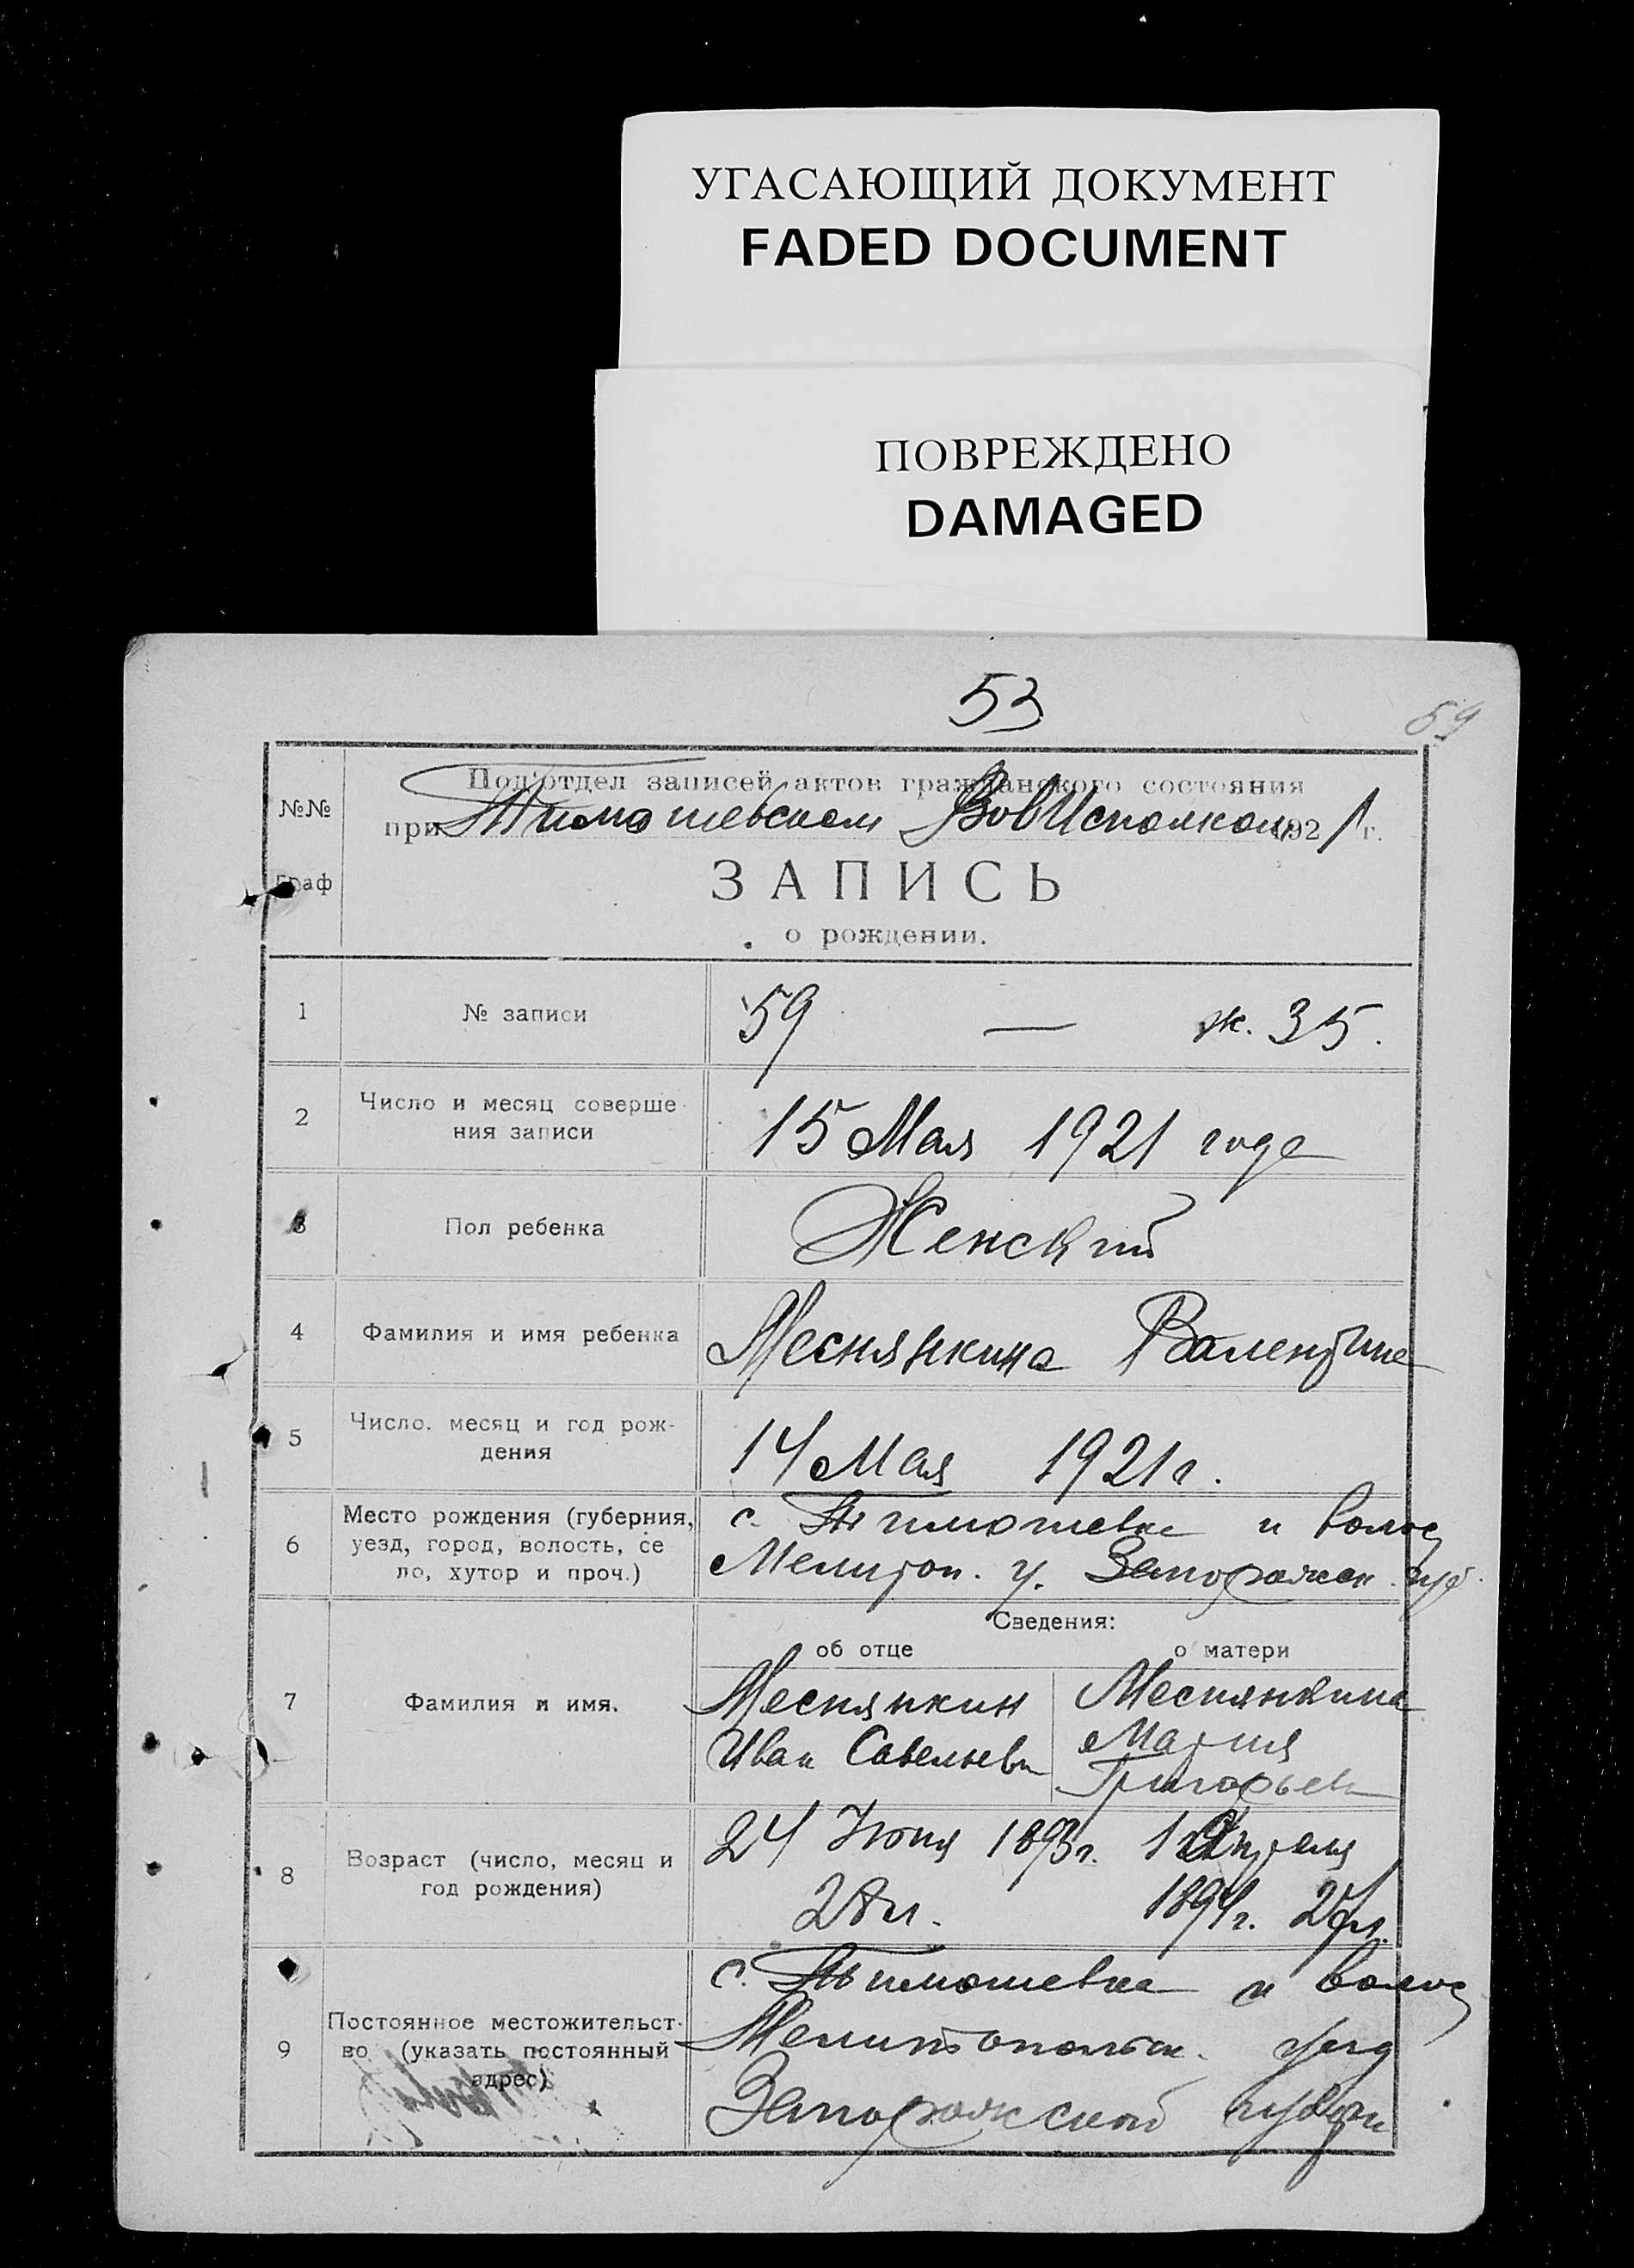 УГАСАЮЩИЙ ДОКУМЕНТ
FADED DOCUMENT
ПОВРЕЖДЕНО
DAMAGED
53
59
№№
Граф
Под'отдел записей актов гражданского состояния
при Тимошевском ВолИсполкоме 1921 г.
ЗАПИСЬ
о рождении.
1
№ записи
59 — ж. 35.
2
Число и месяц соверше-
ния записи
15 Мая 1921 года
3
Пол ребенка
Женский
4
Фамилия и имя ребенка
Меснянкина Валентина
5
Число. месяц и год рож-
дения
14 Мая 1921 г.
6
Место рождения (губерния,
уезд, город, волость, се
ло, хутор и проч.)
с. Тимошевка и волос
Мелитоп. у. Запорожск. губ.
Сведения:
об отце
о матери
7
Фамилия и имя.
Меснянкин
Иван Савельев
Меснянкина
Мария
Григорьев
8
Возраст (число, месяц и
год рождения)
24 Июня 1893 г.
28 л.
1 Апреля
1894 г. 27 л.
9
Постоянное местожительст-
во (указать постоянный
адрес)
с. Тимошевка и волос
Мелитопольск. уезд
Запорожской губерн